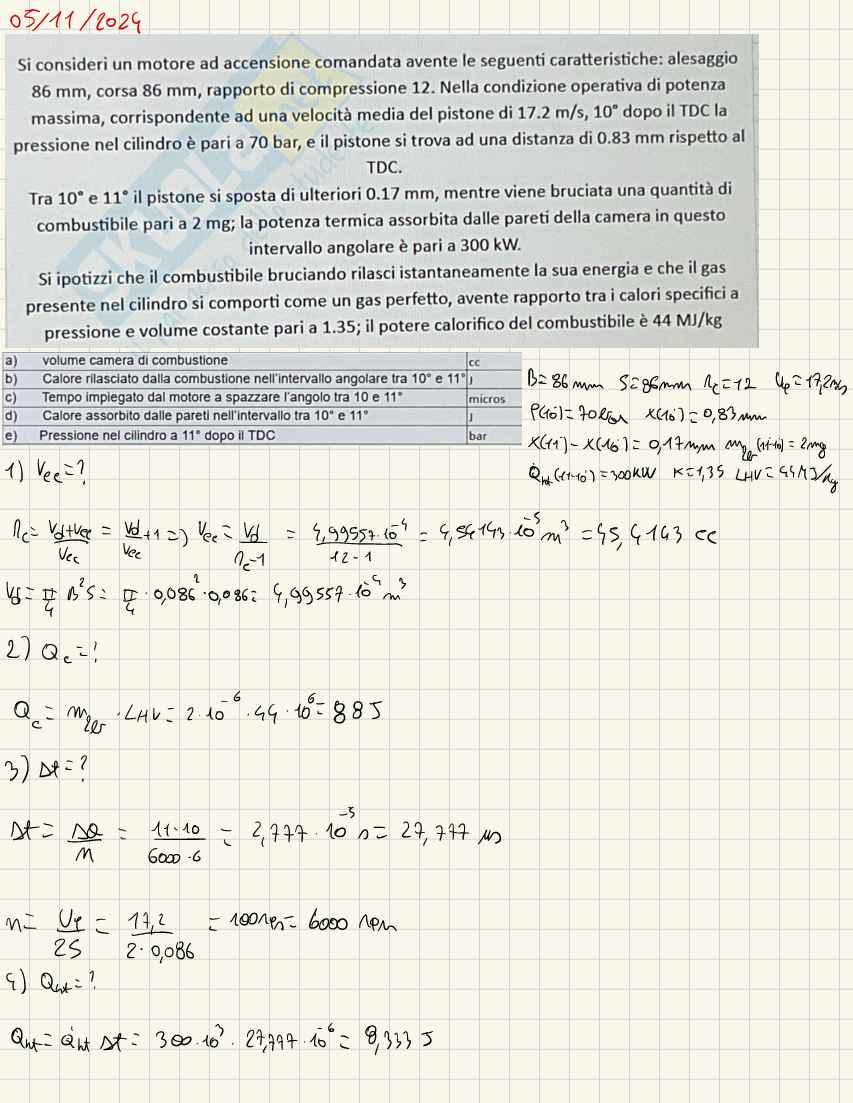 05/11/2024
Si consideri un motore ad accensione comandata avente le seguenti caratteristiche: alesaggio
86 mm, corsa 86 mm, rapporto di compressione 12. Nella condizione operativa di potenza
massima, corrispondente ad una velocità media del pistone di 17.2 m/s, 10° dopo il TDC la
pressione nel cilindro è pari a 70 bar, e il pistone si trova ad una distanza di 0.83 mm rispetto al
TDC.
Tra 10° e 11° il pistone si sposta di ulteriori 0.17 mm, mentre viene bruciata una quantità di
combustibile pari a 2 mg; la potenza termica assorbita dalle pareti della camera in questo
intervallo angolare è pari a 300 kW.
Si ipotizzi che il combustibile bruciando rilasci istantaneamente la sua energia e che il gas
presente nel cilindro si comporti come un gas perfetto, avente rapporto tra i calori specifici a
pressione e volume costante pari a 1.35; il potere calorifico del combustibile è 44 MJ/kg
a) volume camera di combustione cc
b) Calore rilasciato dalla combustione nell'intervallo angolare tra 10° e 11° J
c) Tempo impiegato dal motore a spazzare l'angolo tra 10 e 11° micros
d) Calore assorbito dalle pareti nell'intervallo tra 10° e 11° J
e) Pressione nel cilindro a 11° dopo il TDC bar
B=86mm S=86mm rc=12 Up=17,2m/s
P(10°)=70bar x(10°)=0,83mm
x(11°)-x(10°)=0,17mm (11-10)=2mg
Q̇ht(11-10°)=300KW K=1,35 LHV=44MJ/kg
1) Vcc=?
rc= Vd+Vcc/Vcc = Vd/Vcc +1 =) Vcc= Vd/rc-1 = 4,99557·10⁻⁴/12-1 = 4,54143·10⁻⁵m³ =45,4143 cc
Vd= π/4 B²S= π/4 · 0,086²·0,086= 4,99557·10⁻⁴m³
2) Qc=?
Qc= ·LHV= 2·10⁻⁶·44·10⁶= 88J
3) Δt=?
Δt= Δθ/n = 11-10/6000·6 = 2,777·10⁻⁵s= 27,777 μs
n= Up/2S = 17,2/2·0,086 = 100rps= 6000 rpm
4) Qht=?
Qht= Q̇ht Δt= 300·10³· 27,777·10⁻⁶= 8,333 J